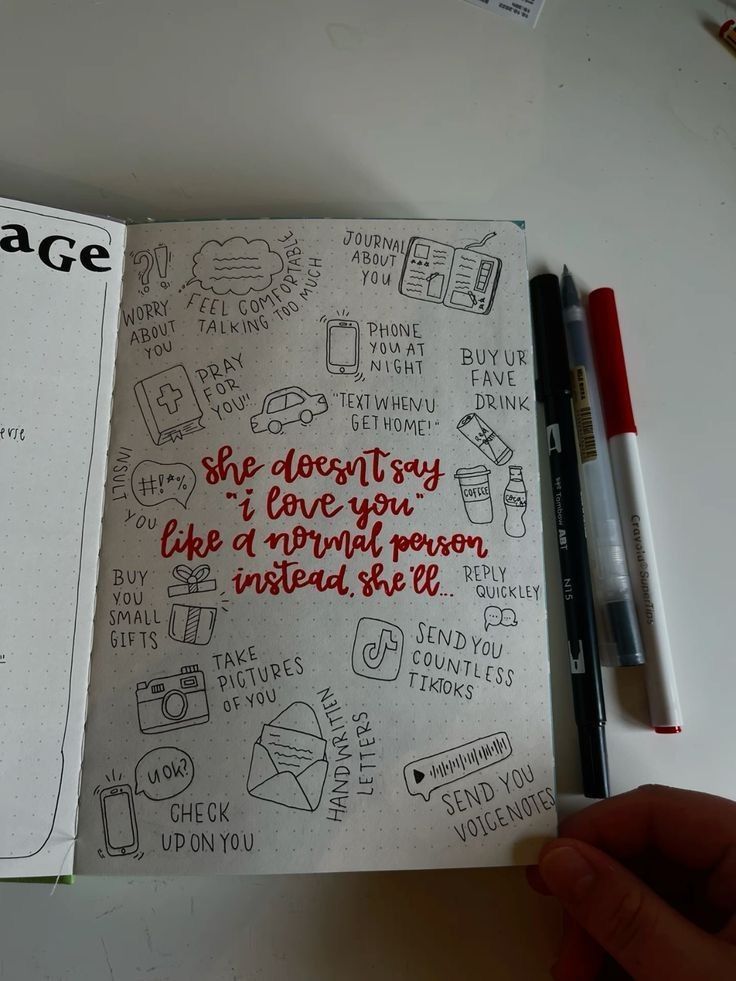 aGe
erse
WORRY
ABOUT
YOU
FEEL COMFORTABLE
TALKING TOO MUCH
JOURNAL
ABOUT
YOU
PHONE
YOU AT
NIGHT
PRAY
FOR
YOU"
"TEXT WHEN U
GET HOME!"
BUY UR
FAVE
DRINK
COFFEE
INSULT
YOU
#!*%
she doesnt say
"i love you"
like a normal person
instead, she'll...
BUY
YOU
SMALL
GIFTS
REPLY
QUICKLEY
TAKE
PICTURES
OF YOU
SEND YOU
COUNTLESS
TIKTOKS
HANDWRITTEN
LETTERS
u ok?
CHECK
UP ON YOU
SEND YOU
VOICENOTES
Tombow ABT
N15
Crayola SuperTips